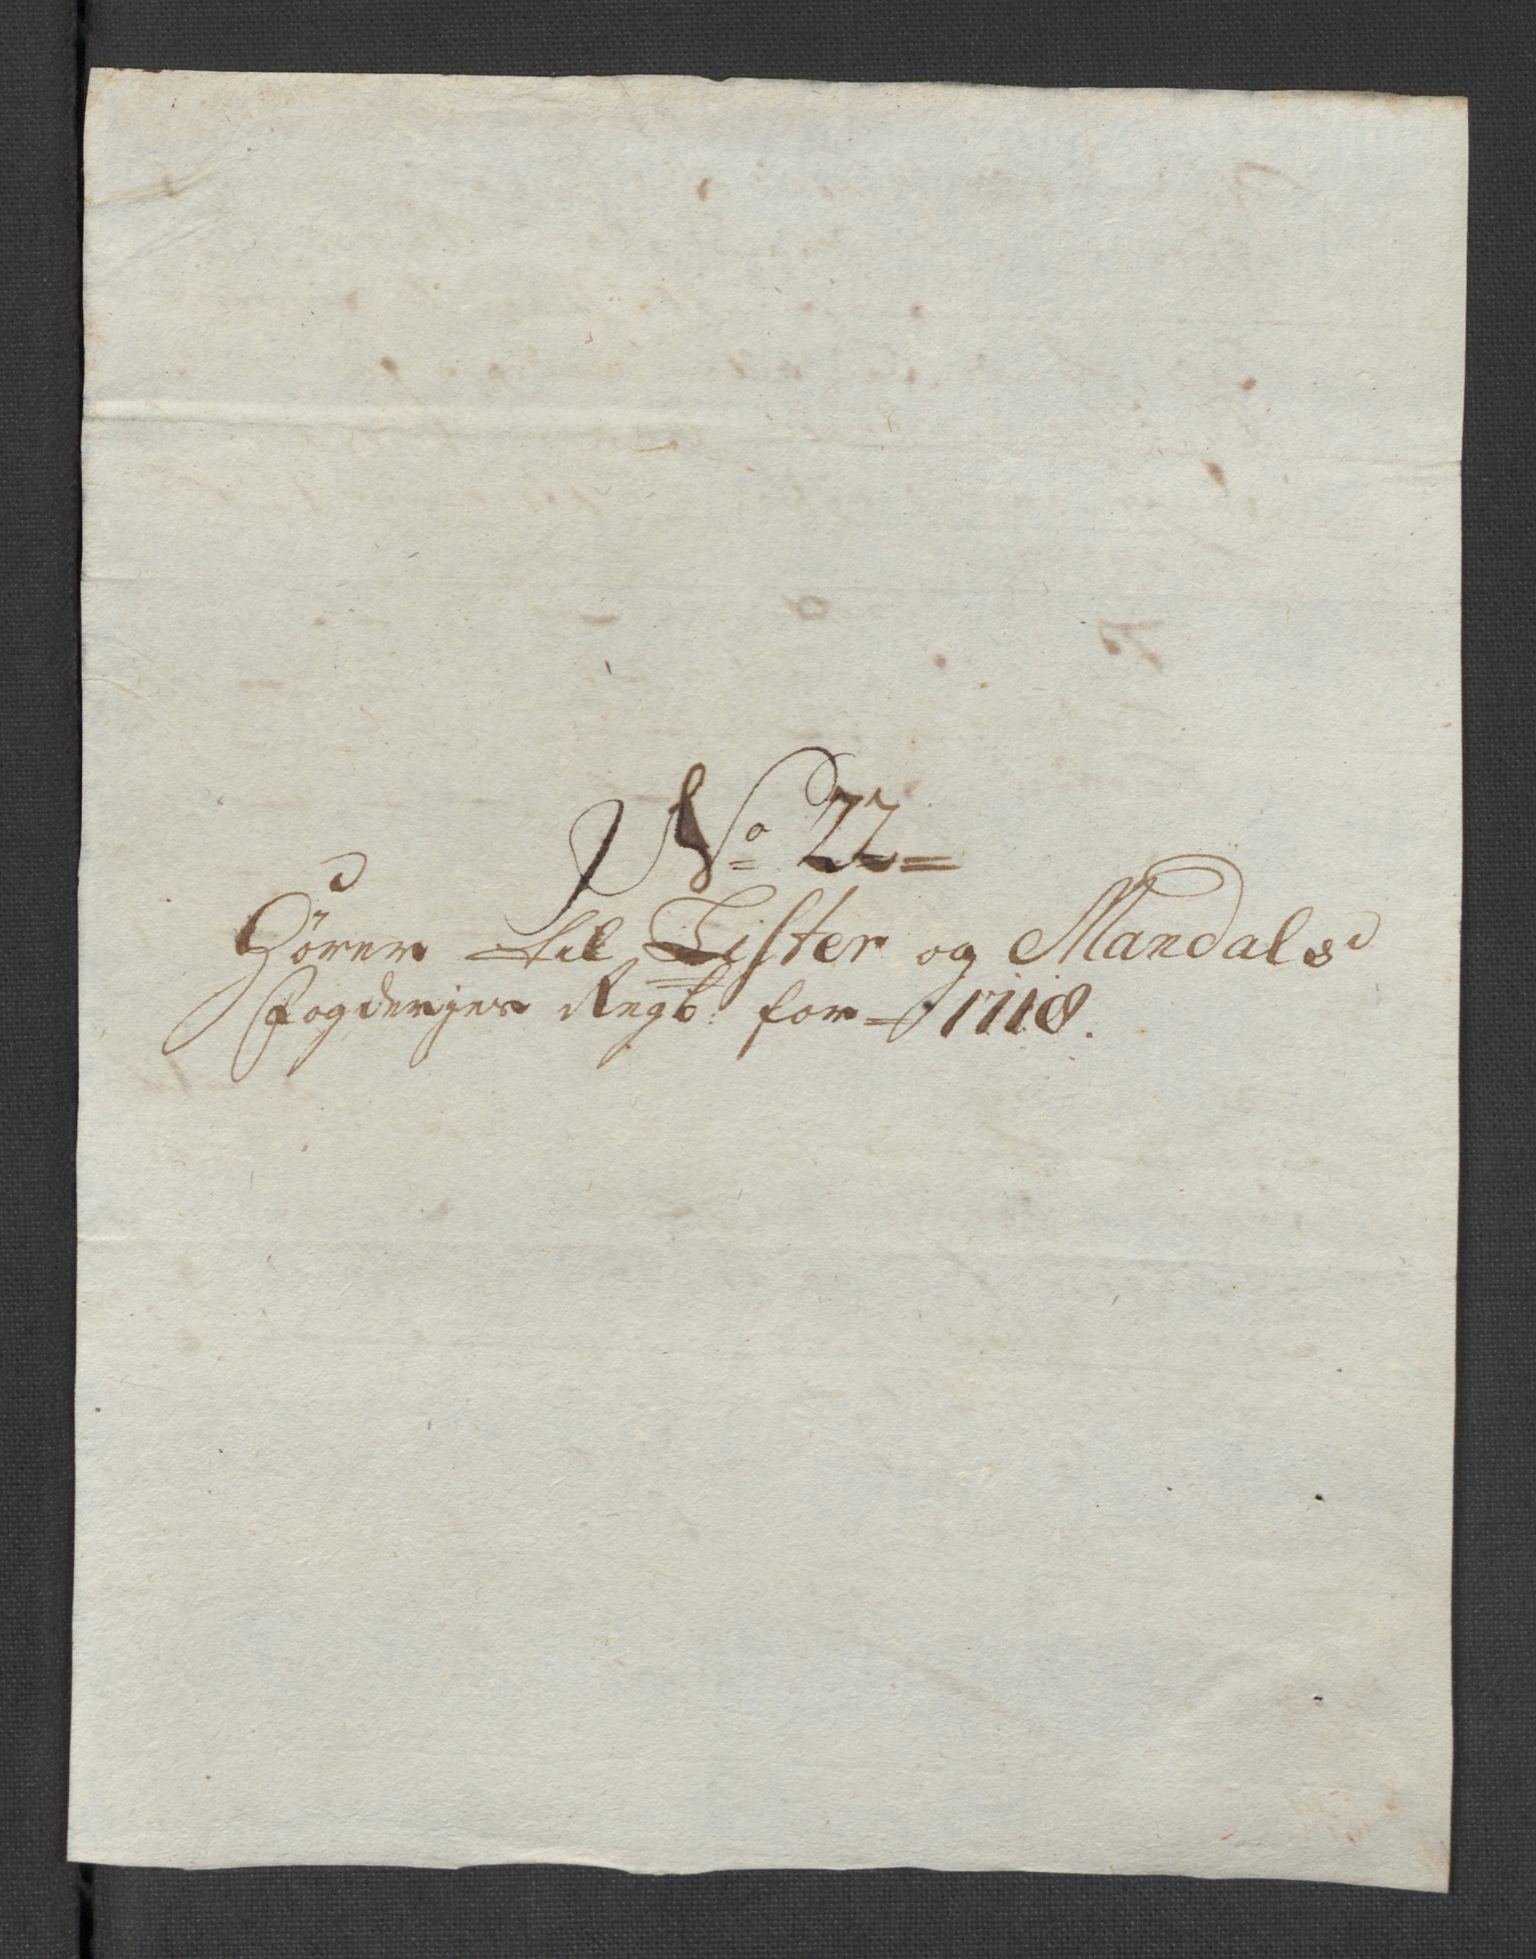 No 22
Hörer til Lister og Mandals
Fogderjers Regb: for 1718.